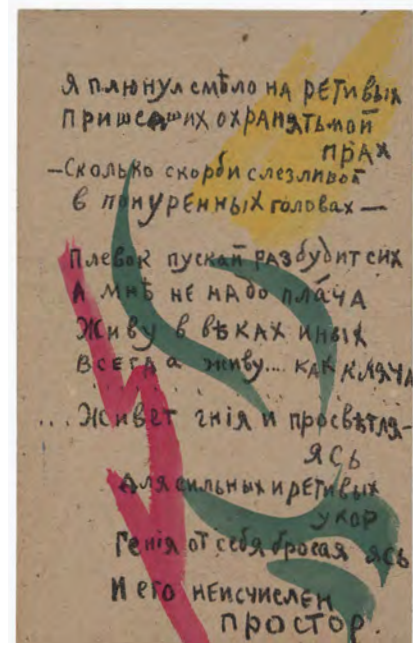 Я плюнул смѣло на ретивых
пришедших охранять мой
прах
—Сколько скорби слезливой
в понуренных головах—
Плевок пускай разбудит сих
А мнѣ не надо плача
Живу в вѣках иных
Всегда живу... как кляча
... Живет гнія и просвѣтля-
ясь
Для сильных и ретивых
укор
Генія от себя бросая ясь
И его неисчислен
простор.